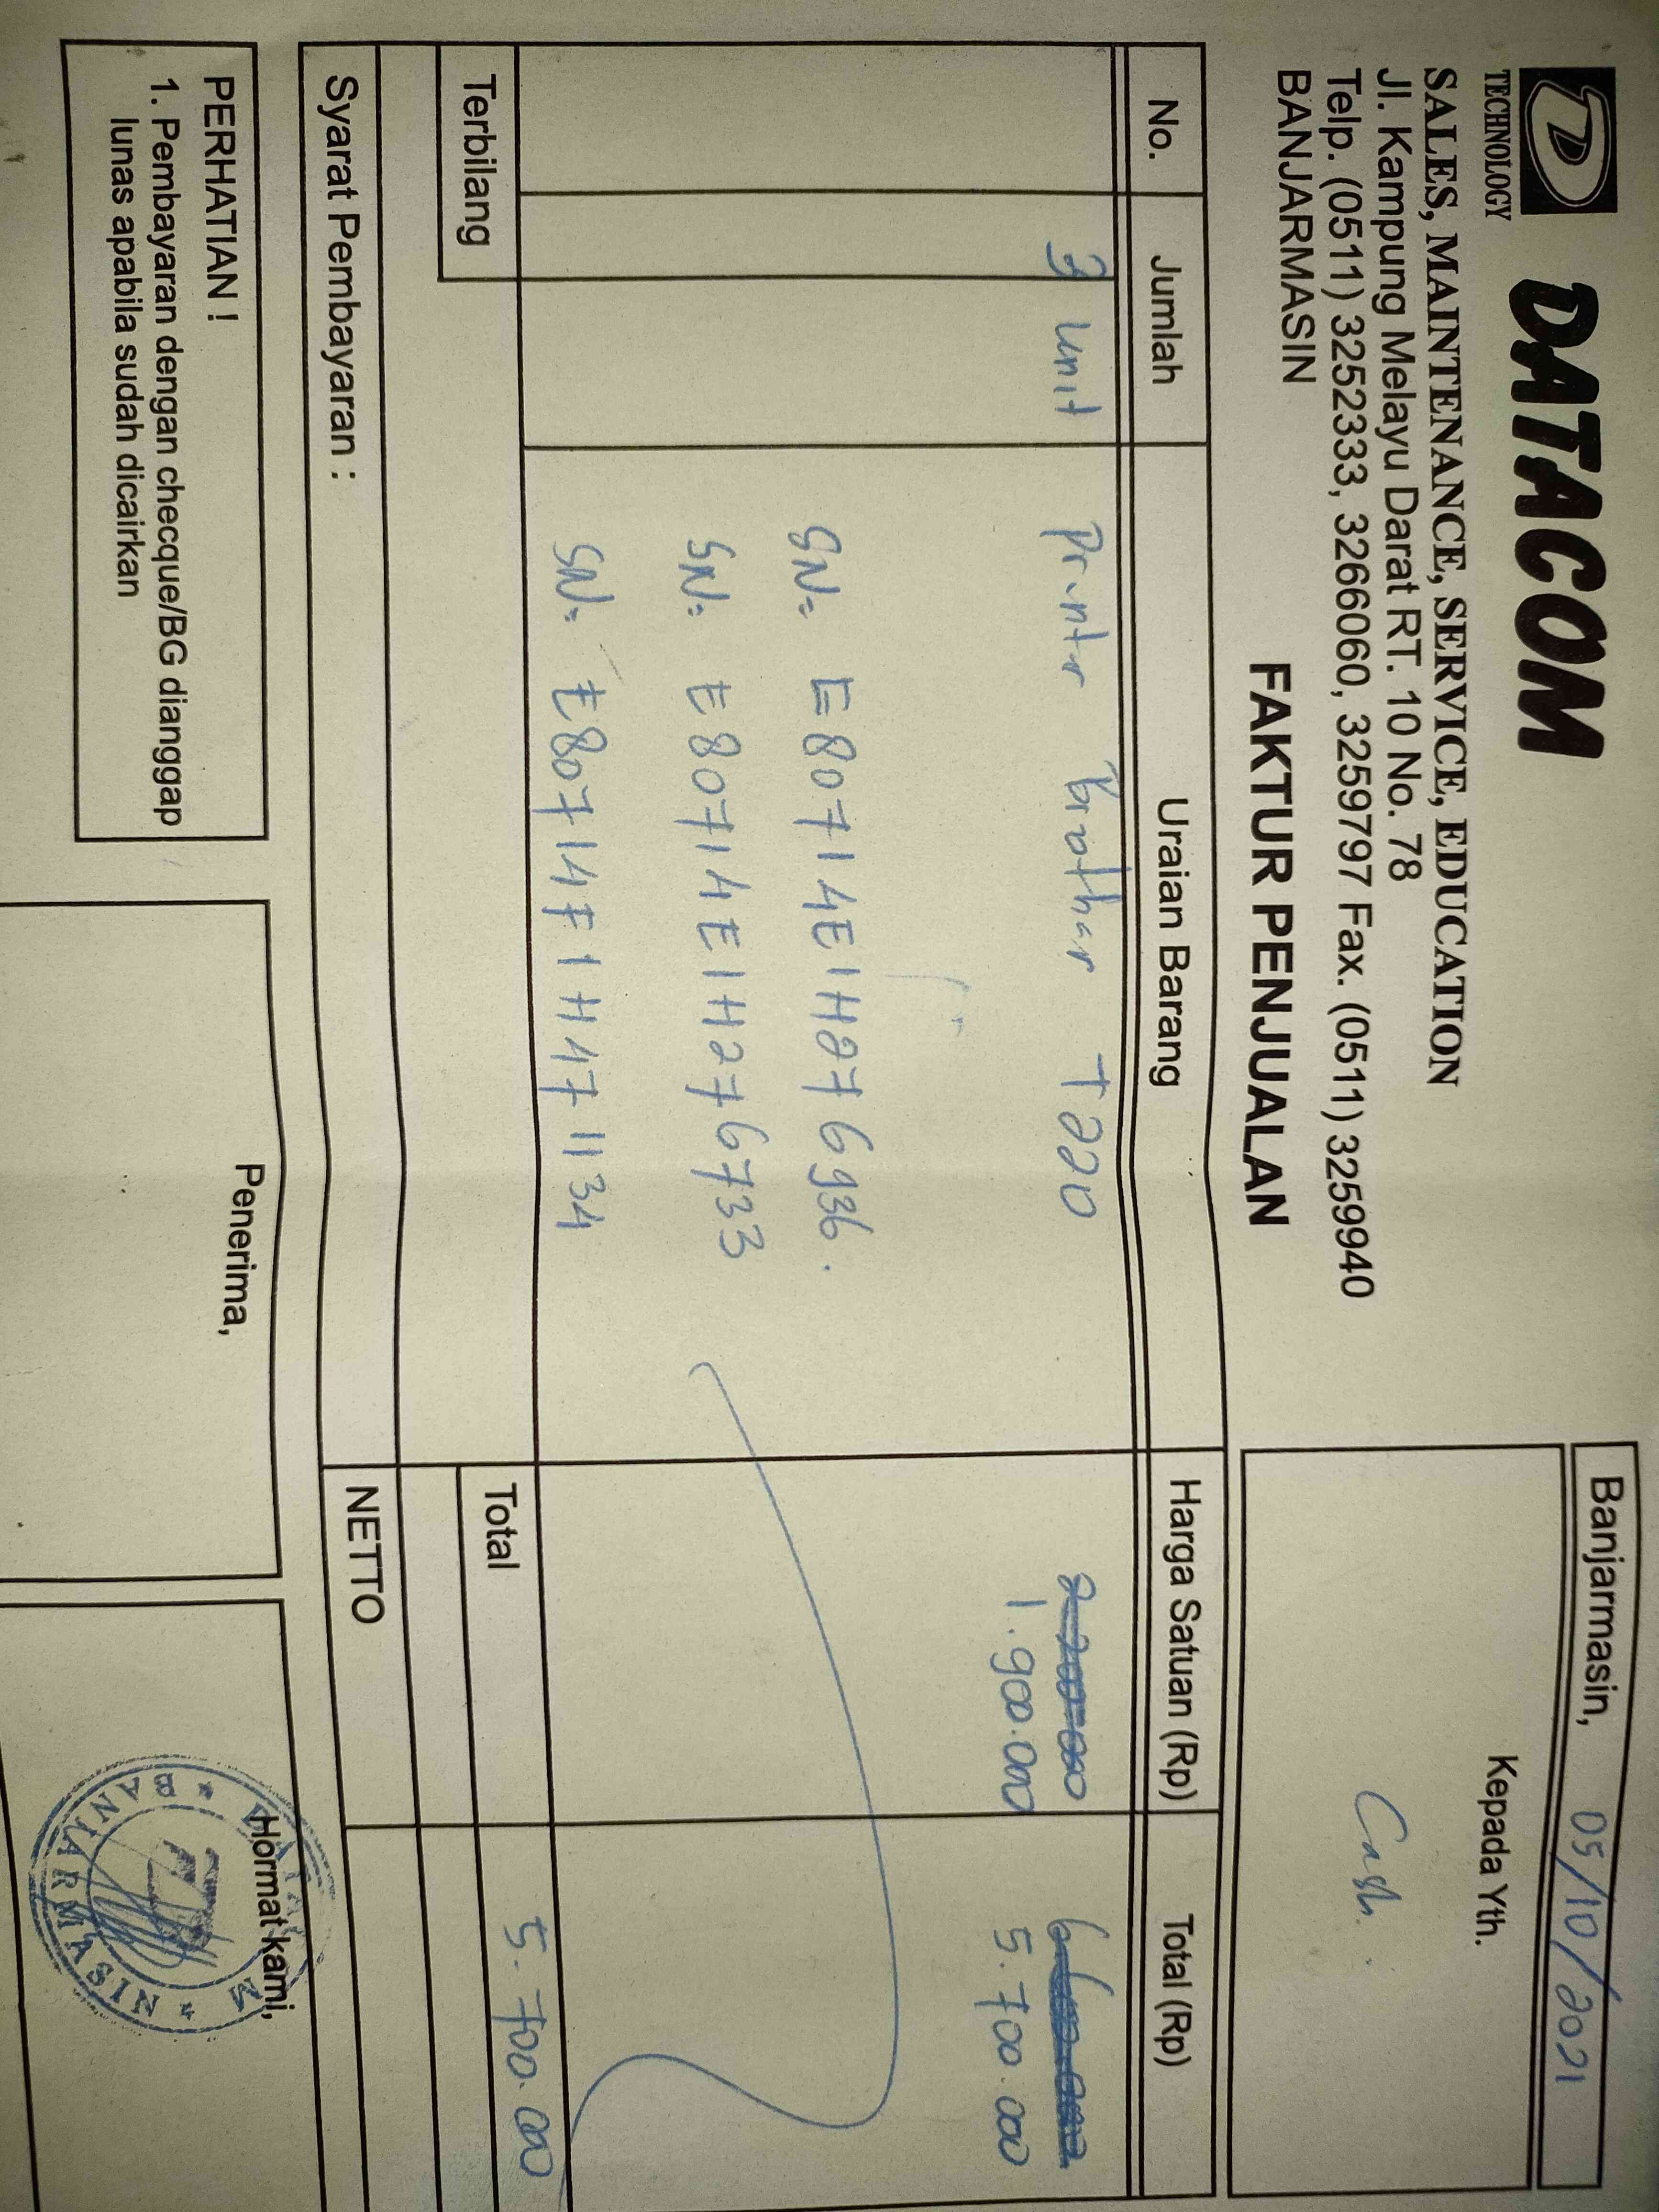 D DATACOM
TECHNOLOGY
SALES, MAINTENANCE, SERVICE, EDUCATION
Jl. Kampung Melayu Darat RT. 10 No. 78
Telp. (0511) 3252333, 3266060, 3259797 Fax. (0511) 3259940
BANJARMASIN
Banjarmasin, 05/10/2021
Kepada Yth.
Cash.
FAKTUR PENJUALAN
No. Jumlah Uraian Barang Harga Satuan (Rp) Total (Rp)
3 Unit Printer Brother T220
1.900.000 5.700.000
SN: E80714E1H276936.
SN: E80714E1H276733
SN: E80714F1H471134
Terbilang Total 5.700.000
Syarat Pembayaran : NETTO
PERHATIAN !
1. Pembayaran dengan checque/BG dianggap
lunas apabila sudah dicairkan
Penerima,
Hormat kami,
BANJARMASIN